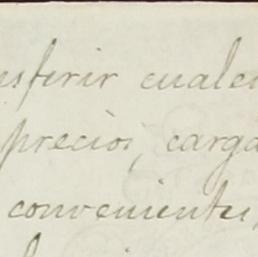 sferir cuales
precios, carga
convenientes,